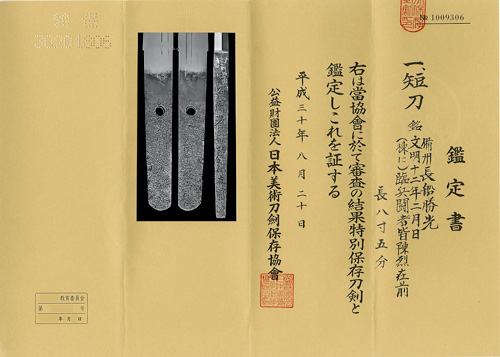 № 1009306
鑑定書
一、短刀
銘
備州長船勝光
文明十二年二月日
(棟に)臨兵闘者皆陳烈在前
長 八寸五分
右は當協會に於て審査の結果特別保存刀剣と
鑑定しこれを証する
平成三十年八月二十日
公益財團法人 日本美術刀剣保存協會
教育委員会
第 号
年 月 日